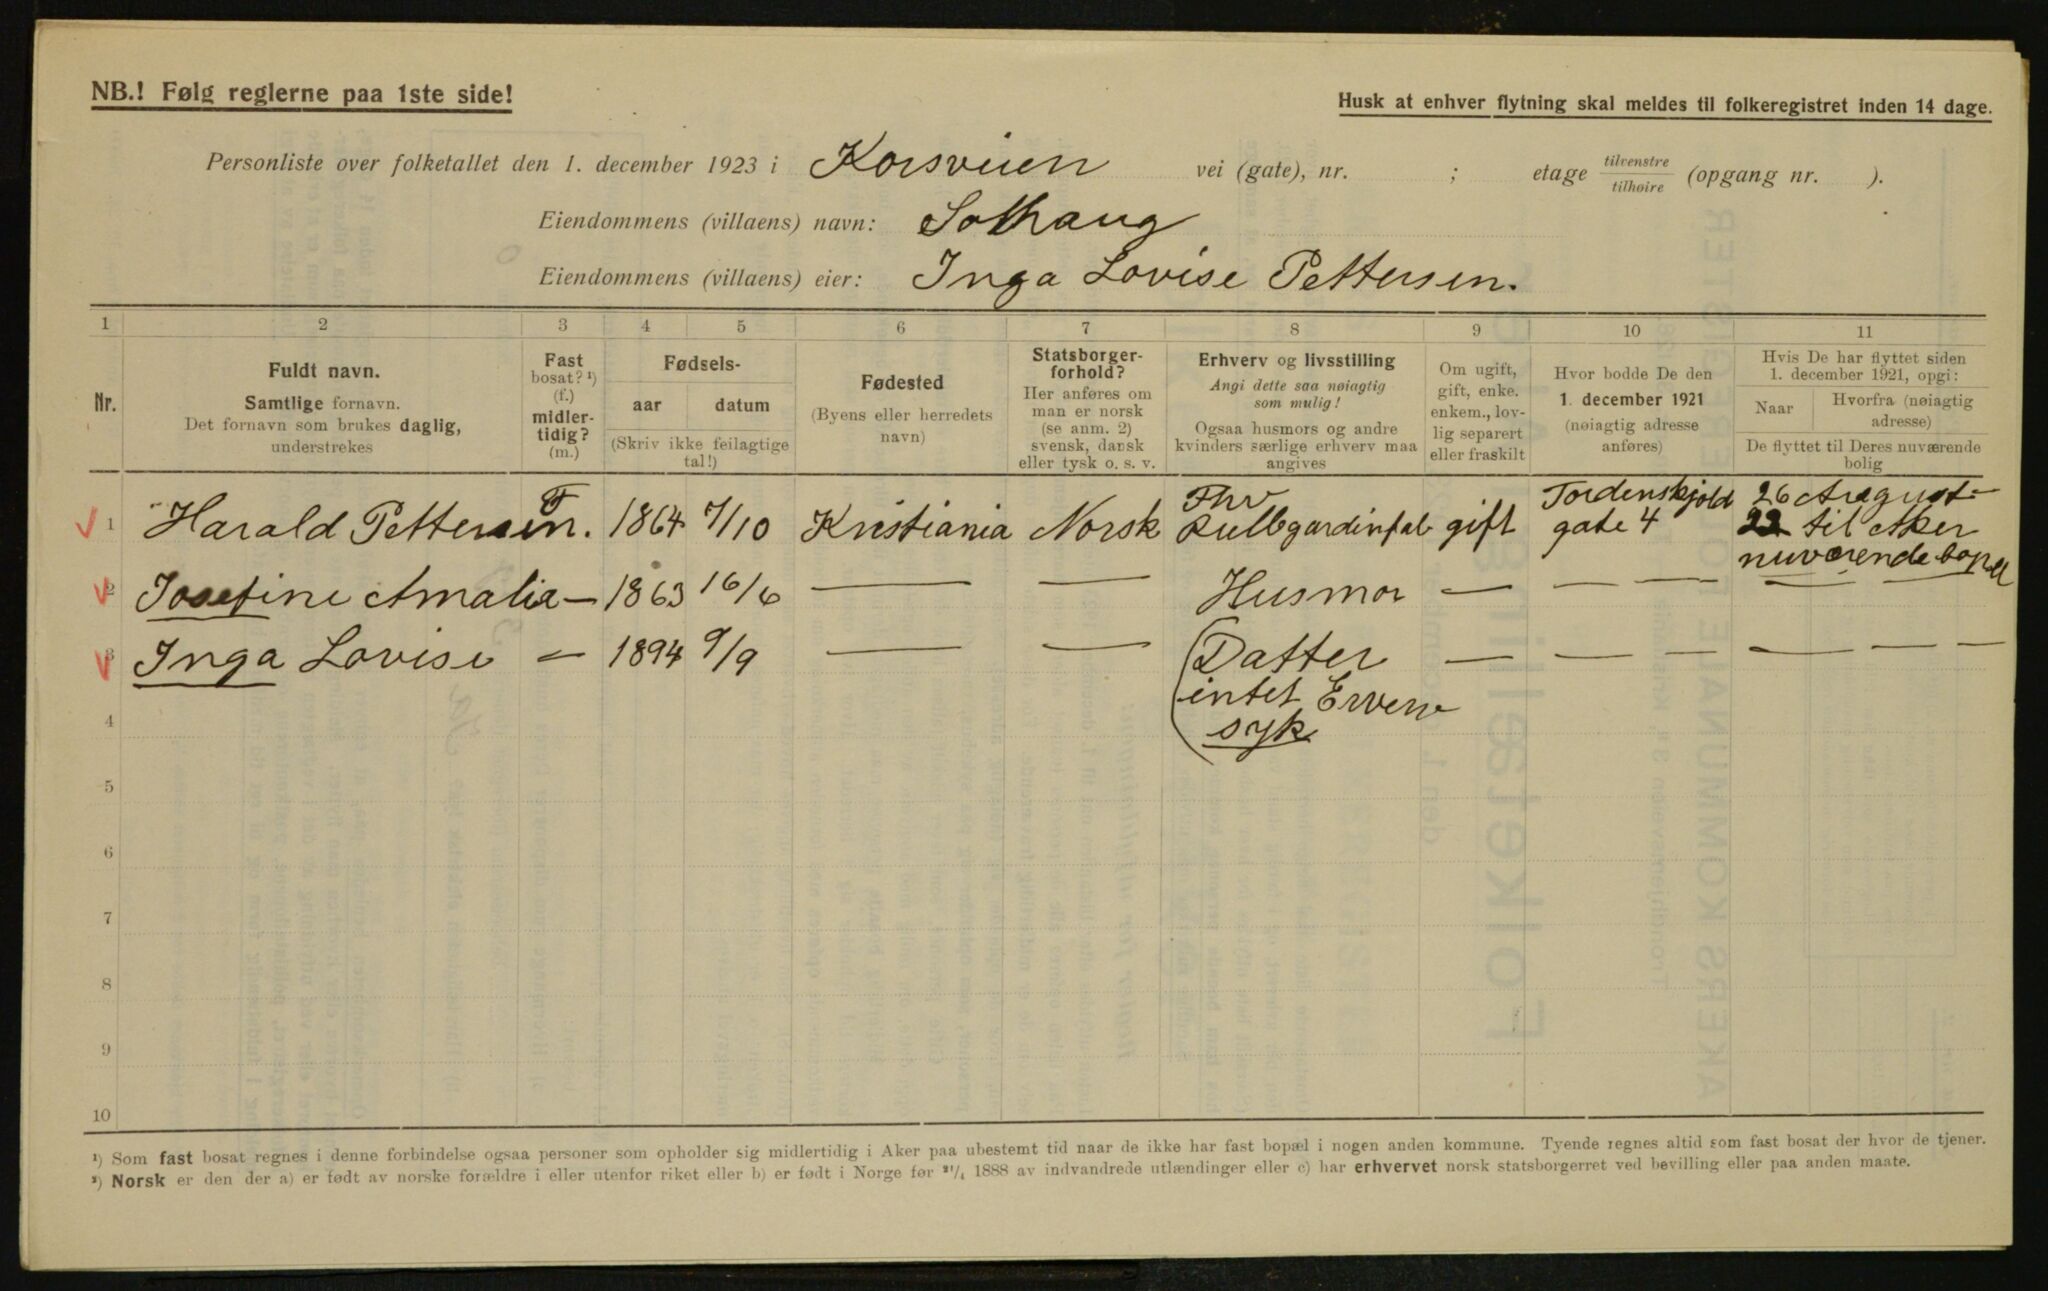 NB.! Følg reglerne paa 1ste side!
Husk at enhver flytning skal meldes til folkeregistret inden 14 dage.
Personliste over folketallet den 1. december 1923 i Korsveien vei (gate), nr. ; etage tilvenstre / tilhøire (opgang nr. ).
Eiendommens (villaens) navn: Solhaug
Eiendommens (villaens) eier: Inga Lovise Pettersen.
1 2 3 4 5 6 7 8 9 10 11
Nr.
Fuldt navn.
Samtlige fornavn.
Det fornavn som brukes daglig,
understrekes
Fast
bosat? ¹)
(f.)
midler-
tidig?
(m.)
Fødsels-
aar datum
(Skriv ikke feilagtige
tal!)
Fødested
(Byens eller herredets
navn)
Statsborger-
forhold?
Her anføres om
man er norsk
(se anm. 2)
svensk, dansk
eller tysk o. s. v.
Erhverv og livsstilling
Angi dette saa nøiagtig
som mulig!
Ogsaa husmors og andre
kvinders særlige erhverv maa
angives
Om ugift,
gift, enke.
enkem., lov-
lig separert
eller fraskilt
Hvor bodde De den
1. december 1921
(nøiagtig adresse
anføres)
Hvis De har flyttet siden
1. december 1921, opgi:
Naar
Hvorfra (nøiagtig
adresse)
De flyttet til Deres nuværende
bolig
1 Harald Pettersen. F 1864 7/10 Kristiania Norsk Fhv Rullegardinfab gift Tordenskjold gate 4 26 August 22 til Aker nuværende bopæl
2 Josefine Amalia — 1863 16/6 — — Husmor — — — — — —
3 Inga Lovise — 1894 9/9 — — (Datter — — — — — — —
intet
4
syk
5
6
7
8
9
10
¹) Som fast bosat regnes i denne forbindelse ogsaa personer som opholder sig midlertidig i Aker paa ubestemt tid naar de ikke har fast bopæl i nogen anden kommune. Tyende regnes altid som fast bosat der hvor de tjener.
²) Norsk er den der a) er født av norske forældre i eller utenfor riket eller b) er født i Norge før ²¹/₄ 1888 av indvandrede utlændinger eller c) har erhvervet norsk statsborgerret ved bevilling eller paa anden maate.